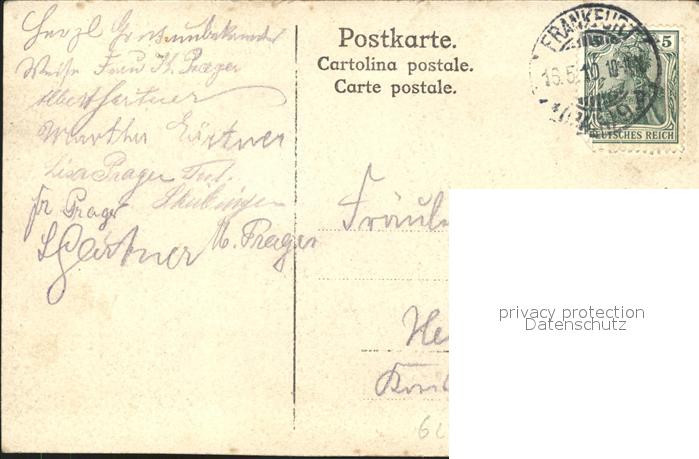 Herzl Gruß unbekannter
Weise Frau Th. Prager
Albert Gärtner
Martha Gärtner
Lisa Prager
Fr Prager
Gärtner M. Prager
Postkarte.
Cartolina postale.
Carte postale.
FRANKFURT
16.5.10. 10-11
5
DEUTSCHES REICH
Fräule
He
privacy protection
Datenschutz